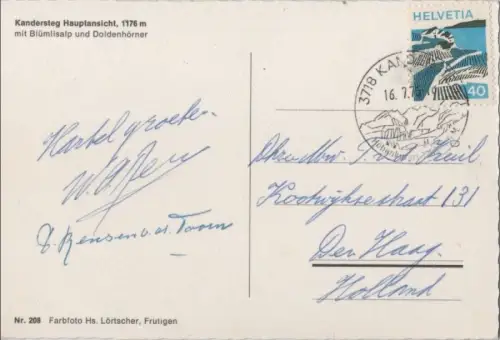 Kandersteg Hauptansicht, 1176 m
mit Blümlisalp und Doldenhörner
HELVETIA
40
3718 KAND
16.7.75
Hartel groete.
J. Rensen v. d. Toorn
Dhr en Mw.
Kootwijksestraat 131
Den Haag
Holland
Nr. 208 Farbfoto Hs. Lörtscher, Frutigen